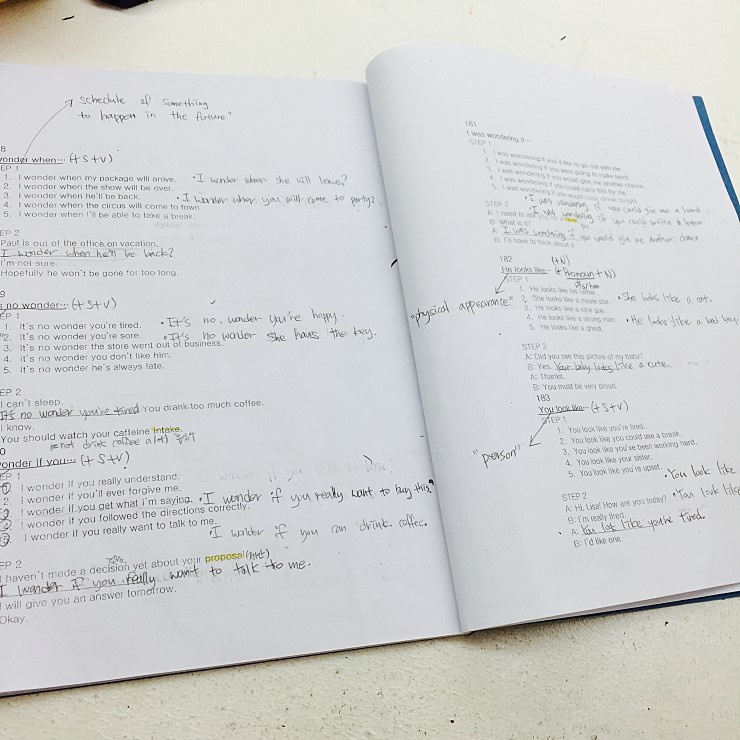 schedule of something
to happen in the future"
8
wonder when... (+S+V)
EP 1
1. I wonder when my package will arrive. • I wonder when she will leave?
2. I wonder when the show will be over.
3. I wonder when he'll be back. • I wonder when you will come to party?
4. I wonder when the circus will come to town.
5. I wonder when I'll be able to take a break.
EP 2
Paul is out of the office on vacation.
I wonder when he'll be back?
I'm not sure.
Hopefully he won't be gone for too long.
9
s no wonder... (+S+V)
EP 1
1. It's no wonder you're tired. • It's no. wonder you're happy.
2. It's no wonder you're sore. • It's no wonder She haves the key.
3. It's no wonder the store went out of business.
4. It's no wonder you don't like him.
5. It's no wonder he's always late.
EP 2
I can't sleep.
It's no wonder you're tired You drank too much coffee.
I know.
You should watch your caffeine intake.
not drink coffee a lot)
0
wonder if you... (+S+V)
EP 1
I wonder if you really understand.
I wonder if you'll ever forgive me.
I wonder if you get what i'm saying. • I wonder if you really want to buy this?
I wonder if you followed the directions correctly.
I wonder if you really want to talk to me.
• I wonder if you can drink coffee.
EP 2
I haven't made a decision yet about your proposal
I wonder if you really want to talk to me.
I will give you an answer tomorrow.
Okay.
181
I was wondering if...
STEP 1
1. I was wondering if you'd like to go out with me.
2. I was wondering if you were going to make lunch.
3. I was wondering if you would give me another chance.
4. I was wondering if you could carry this for me.
5. I was wondering if you would cook dinner tonight.
• I was wondering if you could give me a hand
STEP 2
• I was wondering if you could write a letter
A: I need to ask you
B: What is it?
A: I was wondering if you would give me another chance
B: I'll have to think about it.
182
(+N)
He looks like... (+ Pronoun + N)
his/her
"physical appearance"
STEP 1
1. He looks like his father.
2. She looks like a movie star. • She looks like a cat.
3. He looks like a nice guy.
4. He looks like a strong man. • He looks like a bad boy.
5. He looks like a ghost.
STEP 2
A: Did you see this picture of my baby?
B: Yes. Your baby looks like a cute.
A: Thanks.
B: You must be very proud.
183
You look like... (+S+V)
"person"
STEP 1
1. You look like you're tired.
2. You look like you could use a break.
3. You look like you've been working hard.
4. You look like your sister.
5. You look like you're upset. • You look like
STEP 2
A: Hi, Lisa! How are you today? • You look like
B: I'm really tired.
A: You lot like you're tired.
B: I'd like one.